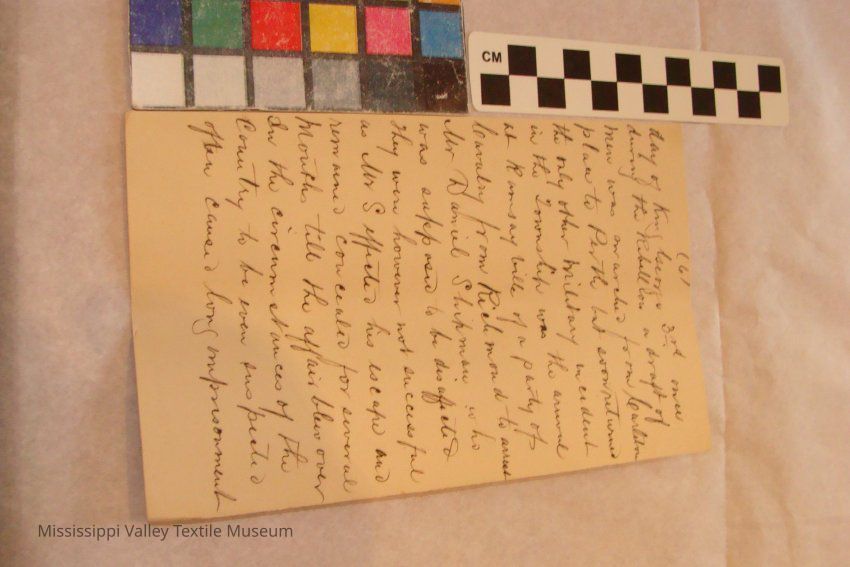 CM
(6)
day of King George 3rd once
during the Rebellion a draft of
men was marched from Carleton
place to Perth but soon returned
the only other Military incident
in the Township was the arrival
at Ramsayville of a party of
Cavalry from Richmond to arrest
Mr Daniel Shipman who
was supposed to be disaffected
They were however not successful
as Mr S effected his escape and
remained concealed for several
Months till the affair blew over
In the circumstances of the
Country to be even suspected
often caused long imprisonment
Mississippi Valley Textile Museum